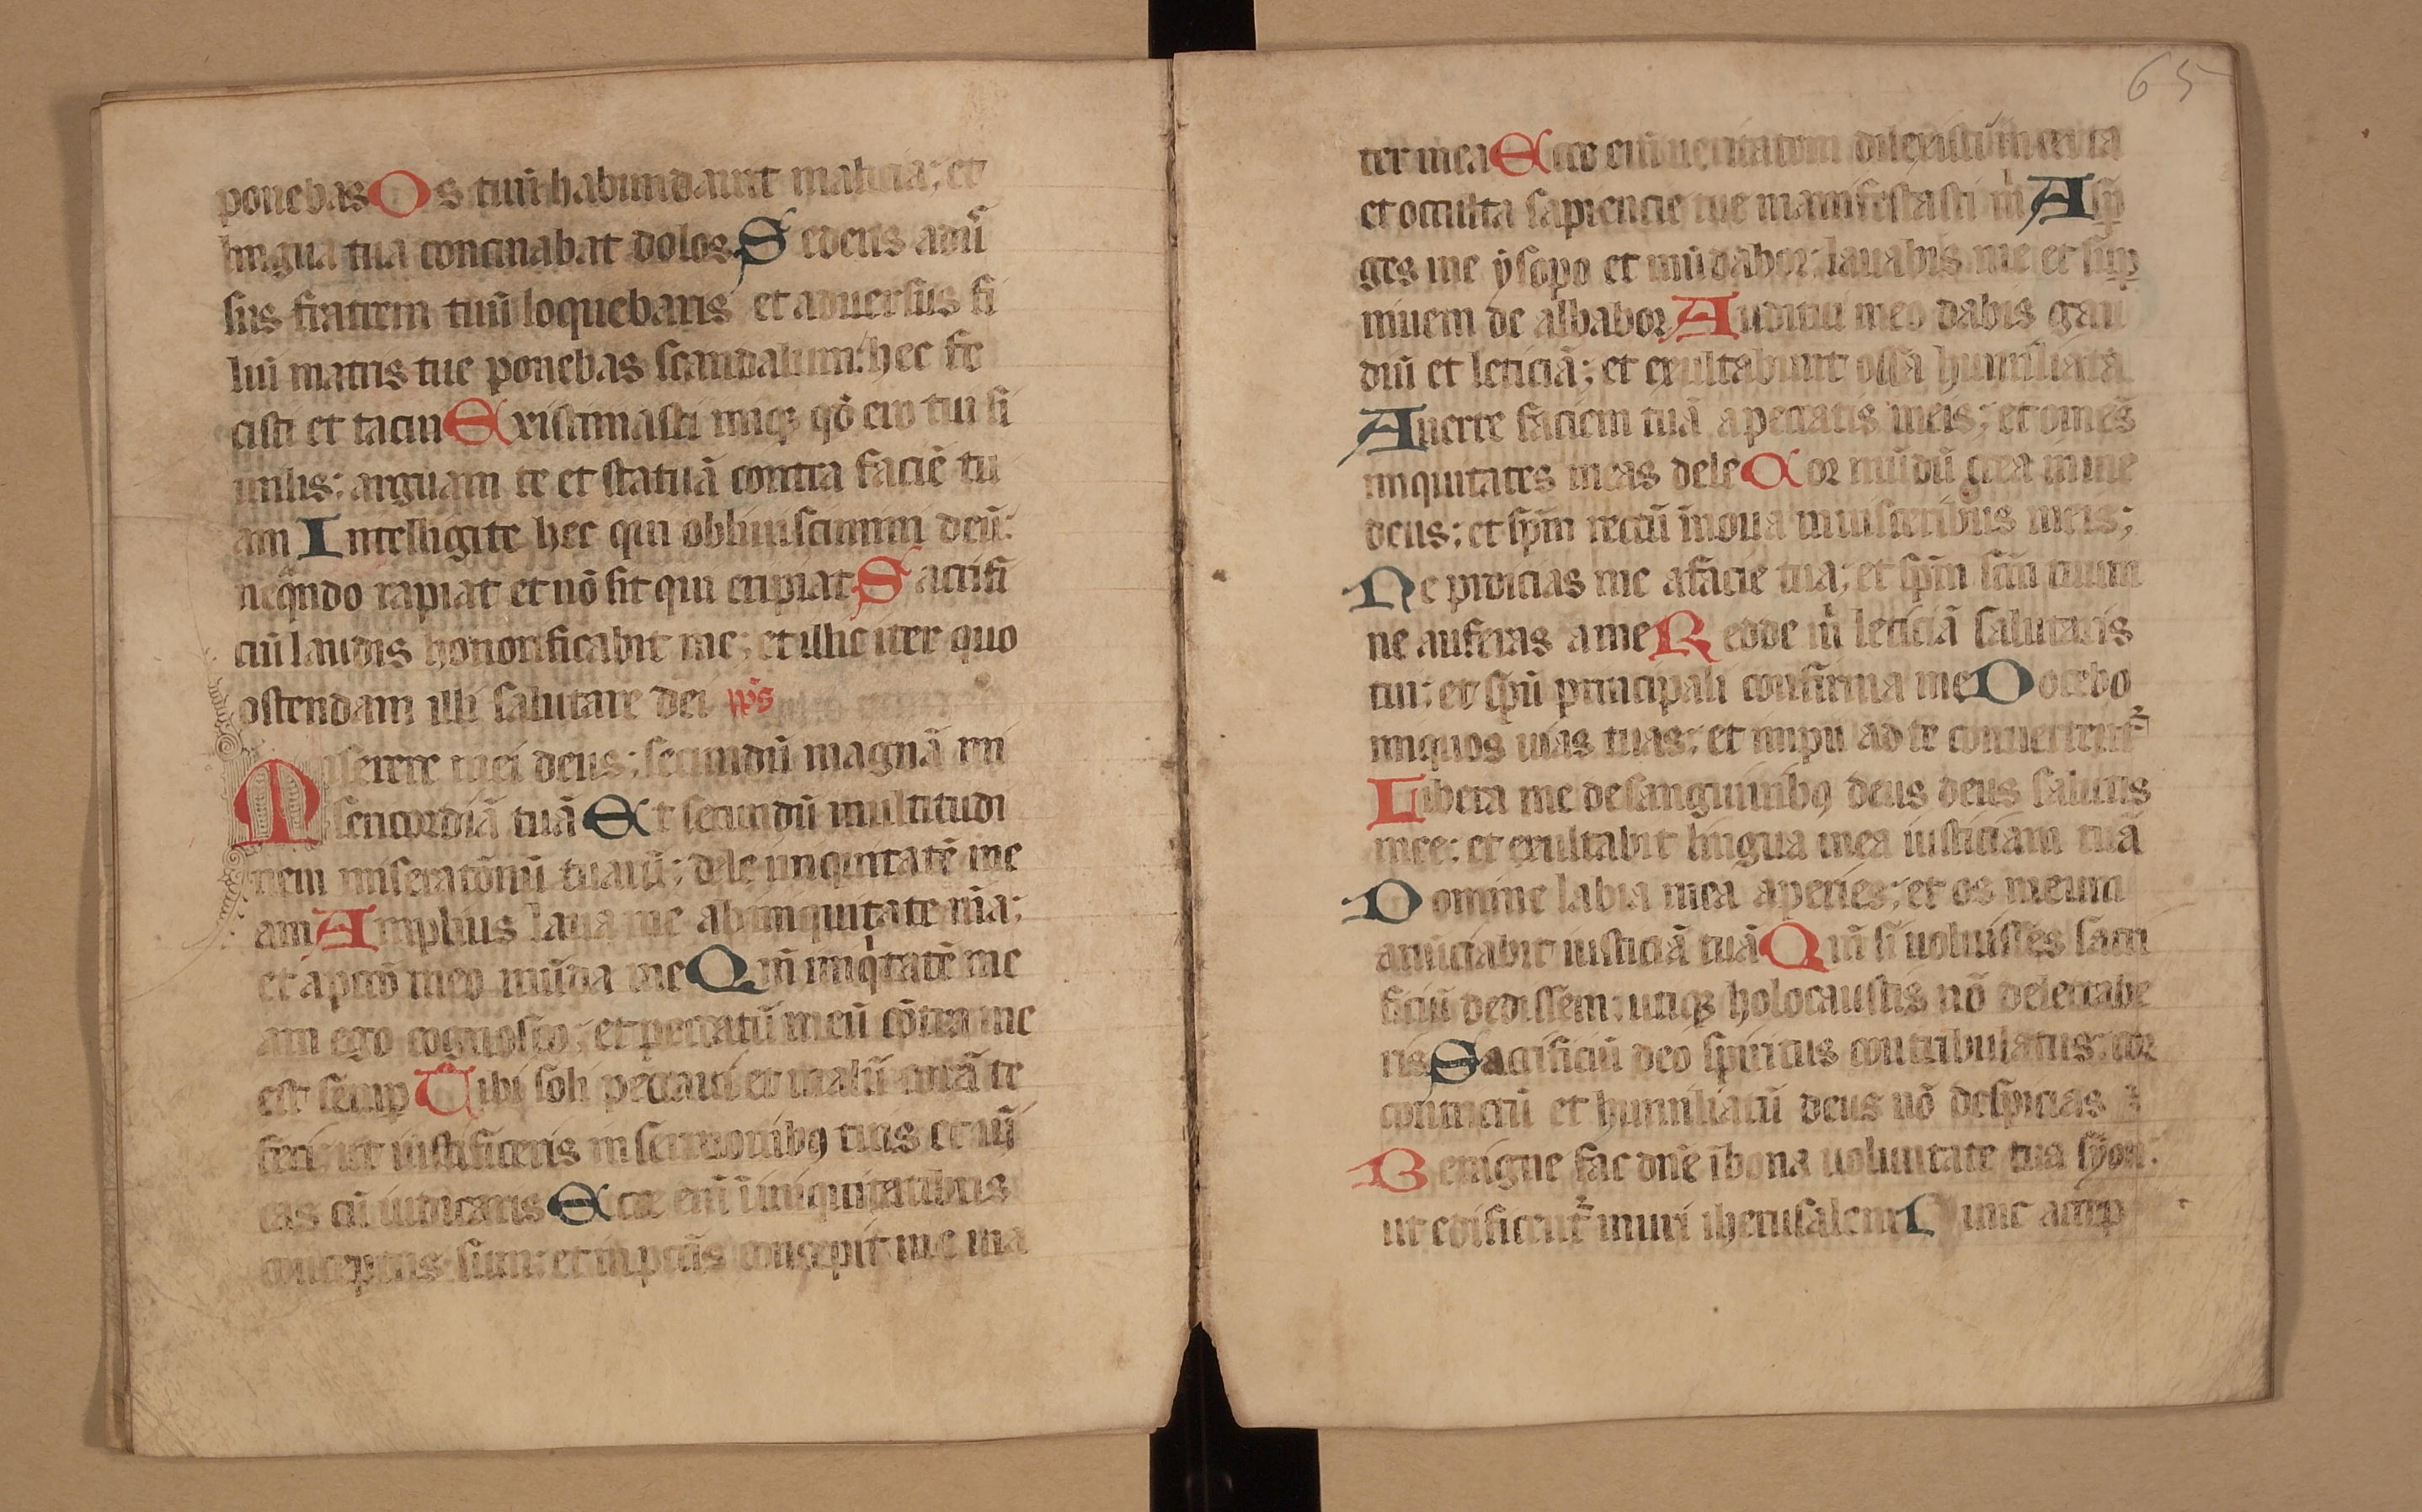 ponebas Os tuū habundauit malicia; et
lingua tua concinabat dolos Sedens aduͬ
sus fratrem tuū loquebaris et aduersus fi
liū matris tue ponebas scandalum: hec fe
cisti et tacui Existimasti iniqꝫ qō ero tui si
milis: arguam te et statuā contra faciē tu
am Intelligite hec qui obliuiscimini deū:
neqͣndo rapiat et nō sit qui eripiat Sacrifi
ciū laudis honorificabit me; et illic iter quo
ostendam illi salutare dei p̄s
Miserere mei deus; secundū magnā mi
sericordiā tuā Et secundū multitudi
nem miseratōnū tuaꝝ; dele iniquitatē me
am Amplius laua me ab iniquitate m̄a;
et a pctō meo mūda me Qm̄ iniqͥtatē me
am ego cognosco; et peccatū meū cōtra me
est semp Tibi soli peccaui et malū corā te
feci: ut iustificeris in sermonibꝯ tuis et uī
cas cū iudicaris Ecce eni ī iniquitatibus
conceptus sum: et in pctīs concepit me ma
65
ter mea Ecce eni ueritatem dilexisti: incerta
et occulta sapiencie tue manifestasti m̍ Asp
ges me ysopo et mūdabor: lauabis me et sup
niuem de albabor Auditui meo dabis gau
diū et leticiā; et exultabunt ossa humiliata
Auerte faciem tuā a peccatis meis; et omēs
iniquitates meas dele Cor mūdū crea in me
deus; et spm̄ rectū īnoua in uisceribus meis;
Ne proicias me a facie tua; et spm̄ scm̄ tuum
ne auferas a me Redde m̍ leticiā salutaris
tui; et spū principali confirma me Docebo
iniquos uias tuas; et impii ad te conuertentͬ
Libera me de sanguinibꝯ deus deus salutis
mee: et exultabit lingua mea iusticiam tuā
Domine labia mea aperies; et os meum
anūciabit iusticiā tuā Qm̄ si uoluisses sacri
ficiū dedissem: utiqꝫ holocaustis nō delectabe
ris Sacrificiū deo spiritus contribulatus: cor
contritū et humiliatū deus nō despicias
Benigne fac dnē ī bona uoluntate tua syon:
ut edificentͬ muri iherusalem Tunc accep